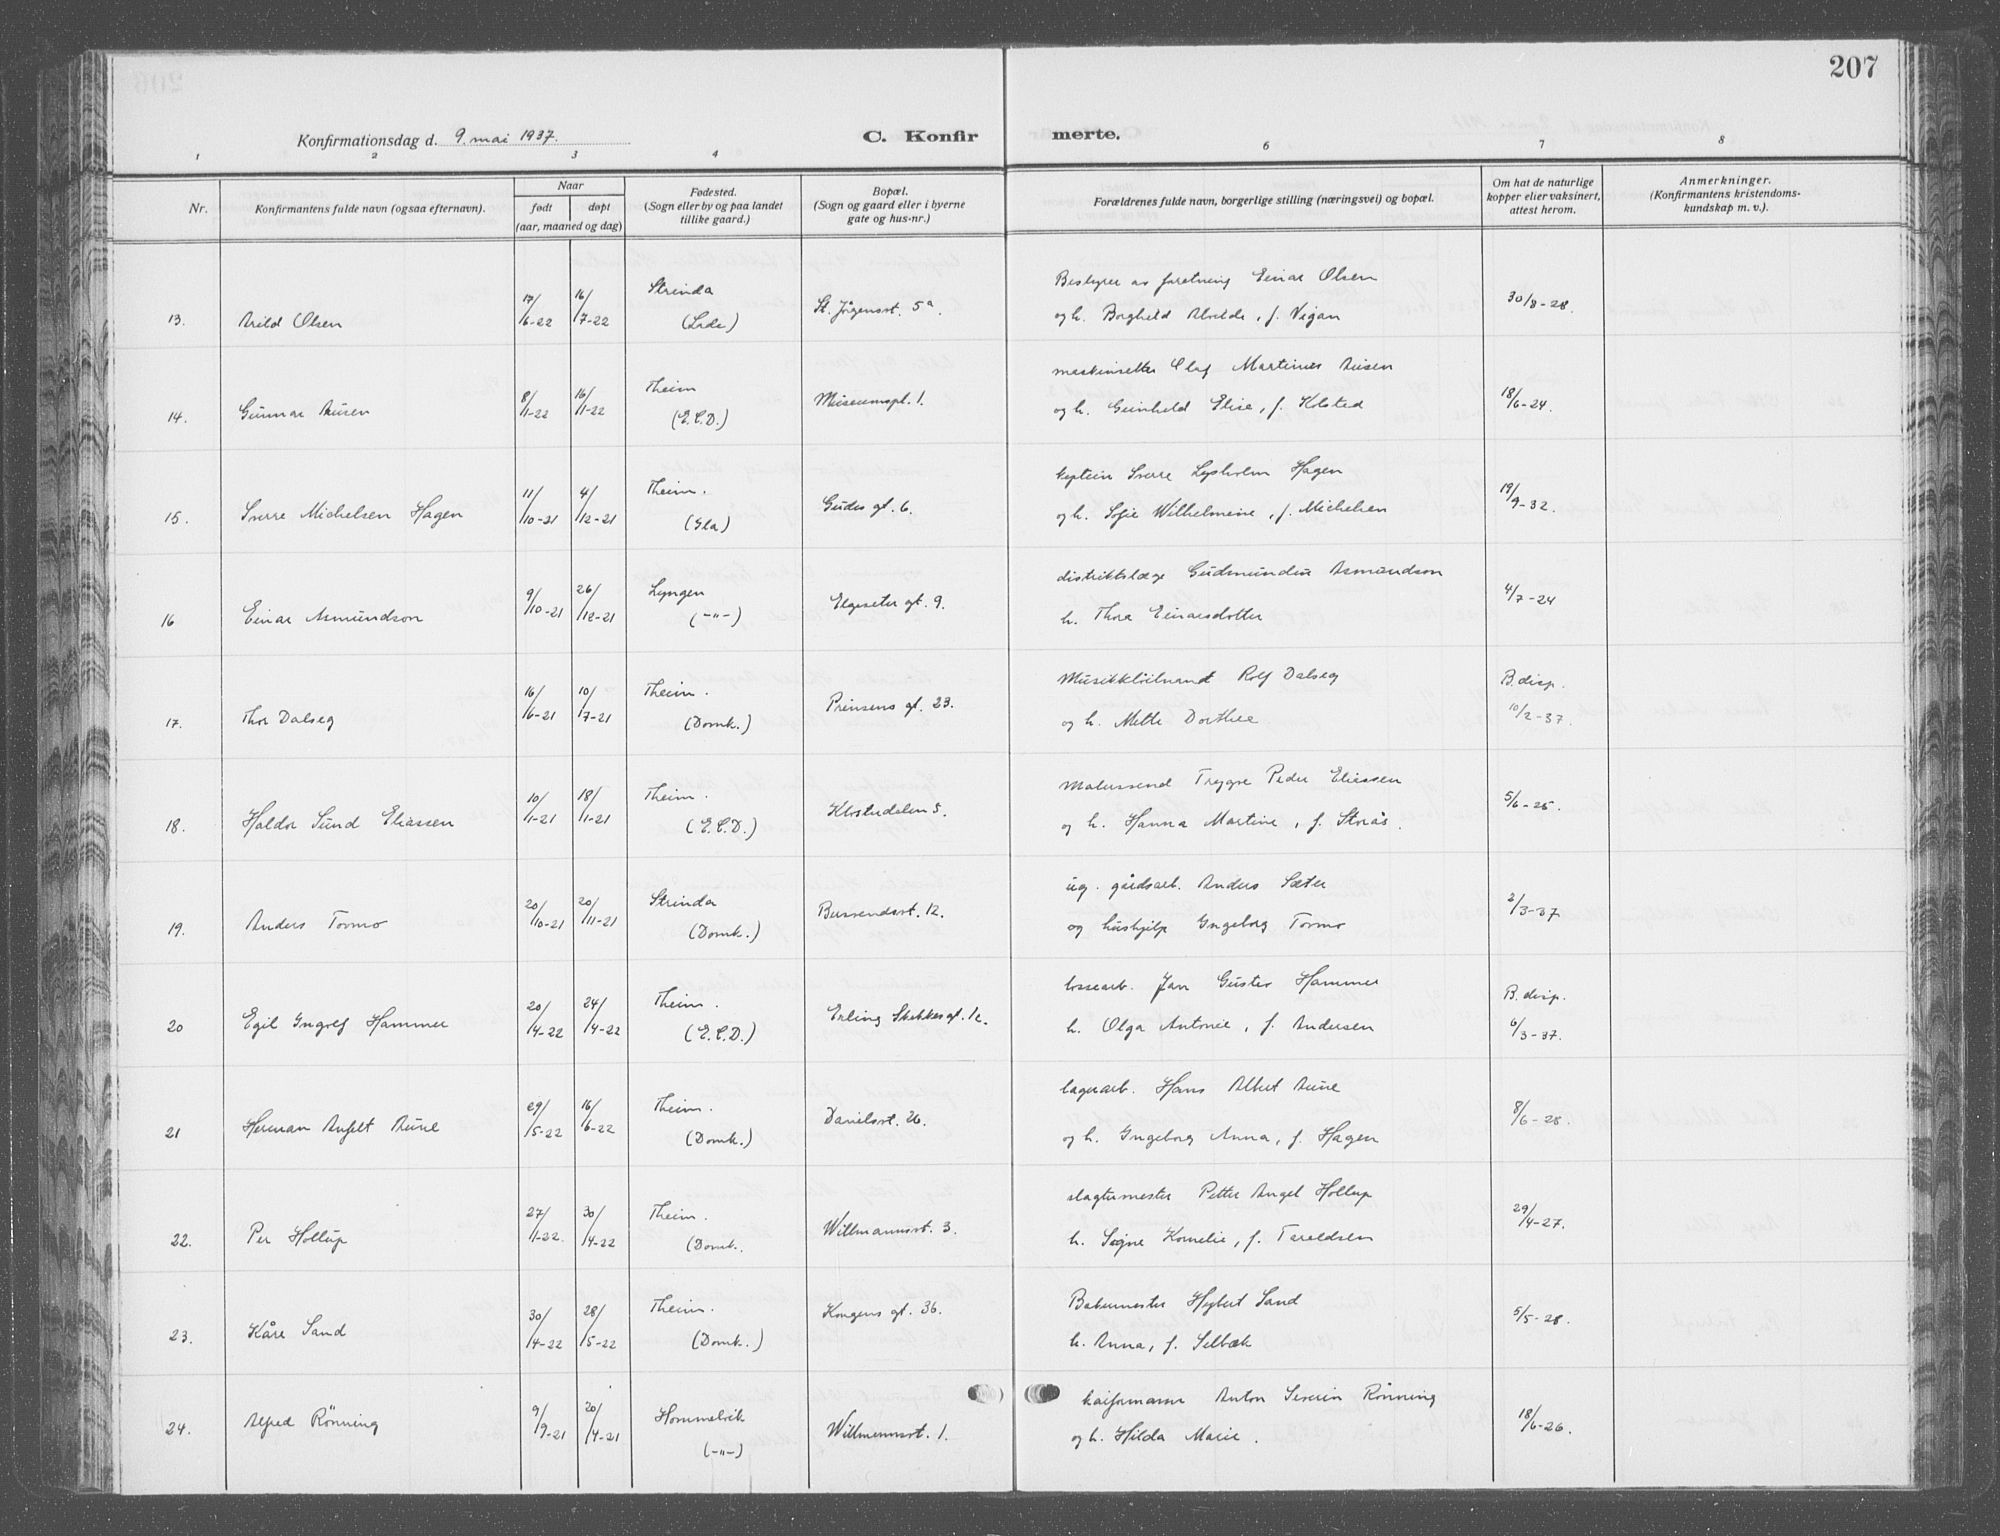 207
Konfirmationsdag d. 9. mai 1937.
C. Konfirmerte.
1 2 3 4 6 7 8
Nr.
Konfirmantens fulde navn (ogsaa efternavn).
Naar
født døpt
(aar, maaned og dag)
Fødested.
(Sogn eller by og paa landet
tillike gaard.)
Bopæl.
(Sogn og gaard eller i byerne
gate og hus-nr.)
Forældrenes fulde navn, borgerlige stilling (næringsvei) og bopæl.
Om hat de naturlige
kopper eller vaksinert,
attest herom.
Anmerkninger.
(Konfirmantens kristendoms-
kundskap m. v.).
Strinda
Bestyrer av forretning Einar Olsen
13. Arild Olsen 17/6-22 16/7-22 (Lade) St. Jørgensvt. 5a. og h. Borghild Alvilde, f. Vigan 30/8-28.
Theim
maskinsetter Olaf Martinus Ausen
14. Gunnar Ausen 8/1-22 16/1-22 (E.C.D.) Museumspl. 1. og h. Gunhild Elise, f. Kolstad 18/6-24.
Theim.
kaptein Sverre Lysholm Hagen
15. Sverre Michelsen Hagen 11/10-21 4/12-21 (Ila) Gudes gt. 6. og h. Sofie Wilhelmine, f. Michelsen 19/9-32.
Lyngen
distriktslæge Gudmundur Asmundson
16 Einar Asmundson 9/10-21 26/12-21 (-"-) Elgeseter gt. 9. h. Thora Einarsdotter 4/7-24
Theim.
Musikkløitnant Rolf Dalseg B. disp.
17. Thor Dalseg 16/6-21 10/7-21 (Domk.) Prinsens gt. 23. og h. Mette Dorthea 10/2-37.
Theim.
Malersvend Trygve Peder Eliassen
18. Haldor Sund Eliassen 10/1-21 18/1-21 (E.C.D.) Klosterdalen 5. og h. Hanna Martine, f. Storås. 5/6-25.
Strinda
ug. gårdsarb. Anders Sæter
19. Anders Tormo 20/10-21 20/11-21 (Domk.) Bernendsvt. 12. og hushjelp Ingeborg Tormo 2/3-37
Theim.
lossearb. Jan Gustav Hammer B. disp.
20 Egil Ingolf Hammer 20/4-22 24/4-22 (E.C.D.) Erling Skakkes gt. 12. h. Olga Antonie, f. Andersen 6/3-37.
Theim.
lagerarb. Hans Albert Aune
21 Herman Aune 29/5-22 16/6-22 (Domk.) Danielsvt. 26. og h. Ingeborg Anna, f. Hagen 8/6-28.
Theim.
slagtermester Petter Angel Hollup
22. Per Hollup 27/1-22. 30/4-22 (Domk. Willmannsvt. 3. h. Signe Kornelie, f. Taraldsen 29/4-27.
Theim.
Bakermester Sand
23. Kåre Sand 30/4-22 28/5-22 (Domk.) Kongens gt. 36. h. Anna, f. Selbæk 5/5-28.
Hommelvik
kaiformann Anton Severin Rønning
24. Alfred Rønning 9/9-21 20/4-21 (-"-) Willmannsvt. 1. og h. Hilda Marie. 18/6-26.